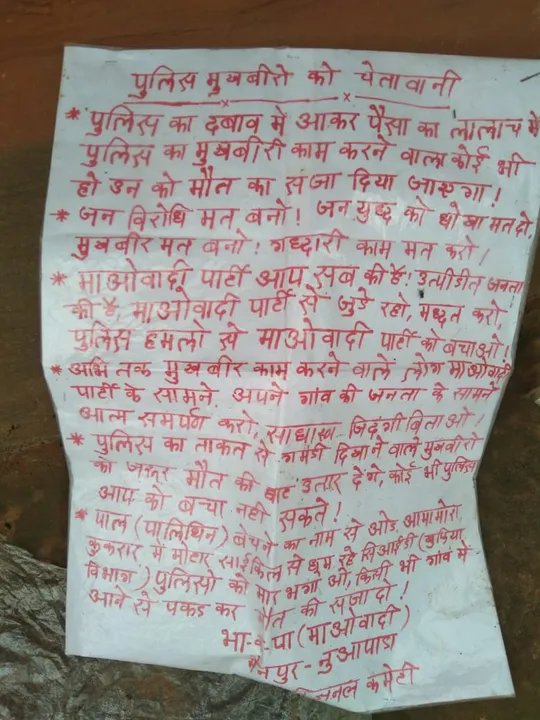 पुलिस मुखबीरो को चेतावानी
* पुलिस का दबाव मे आकर पैसा का लालाच मे
पुलिस का मुखबीरी काम करने वाला कोई भी
हो उन को मौत का सजा दिया जाएगा!
* जन विरोधि मत बनो! जन युद्ध को धोखा मत दो,
मुखबीर मत बनो! गध्दारी काम मत करो,
* माओवादी पार्टी आप सब की है! उत्पीडीत जनता
की है, माओवादी पार्टी से जुडे रहो, मध्दत करो,
पुलिस हमलो से माओवादी पार्टी को बचाओ!
* अभि तक मुखबीर काम करने वाले लोग माओवादी
पार्टी के सामने अपने गांव की जनता के सामने
आत्म समर्पण करो, साधारण जिदंगी बिताओ!
* पुलिस का ताकत से गमंडी दिखाने वाले मुखबीरो
को जरूर मौत की घाट उतार देंगे, कोई भी पुलिस
आप को बचा नही सकते!
* पाल (पालिथिन) बेचने का नाम से ओड, आमामोरा,
कुकरार मे मोटार साईकिल से घुम रहे सिआईडी (खुफिया
विभाग) पुलिसो को मार भगा ओ, किसी भी गांव मे
आने से पकड कर मौत की सजा दो!
भा-क-पा (माओवादी)
पुर - नुआपाडा
कमेटी